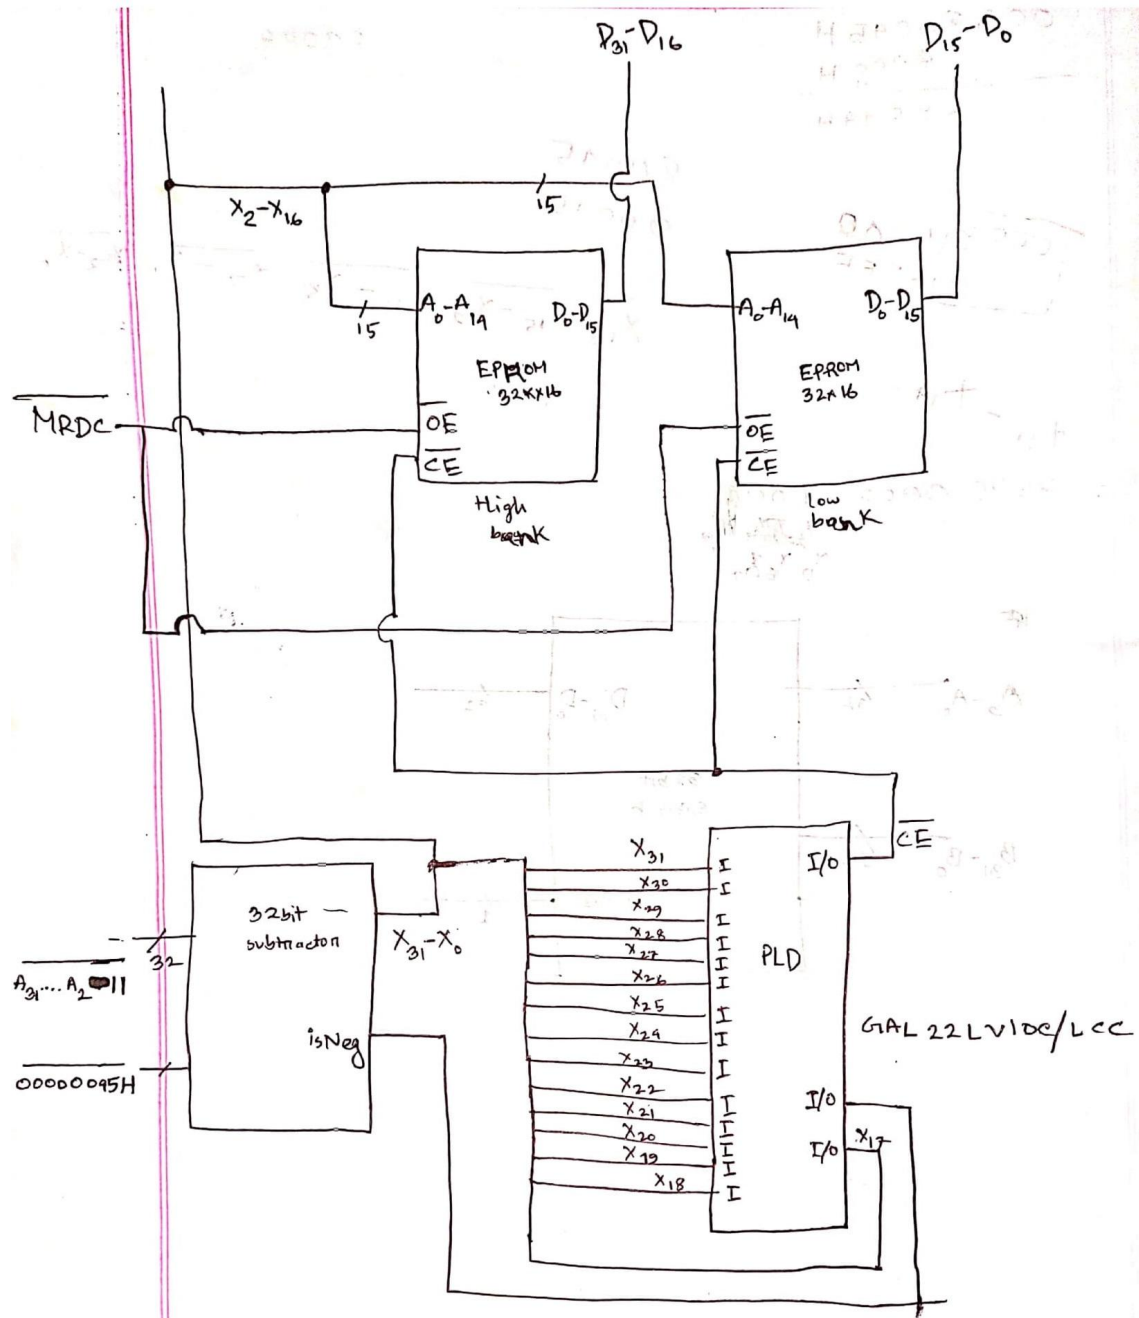 D31-D16
D15-D0
X2-X16
15
15
A0-A14
D0-D15
EPROM
32K×16
OE
CE
High
bank
A0-A14
D0-D15
EPROM
32×16
OE
CE
Low
bank
MRDC
CE
32bit
subtractor
32
A31....A2 11
X31-X0
isNeg
00000095H
X31
X30
X29
X28
X27
X26
X25
X24
X23
X22
X21
X20
X19
X18
I
I
I
I
I
I
I
I
I
I
I
I
I
I
PLD
I/O
I/O
I/O
X17
GAL22LV10C/LCC